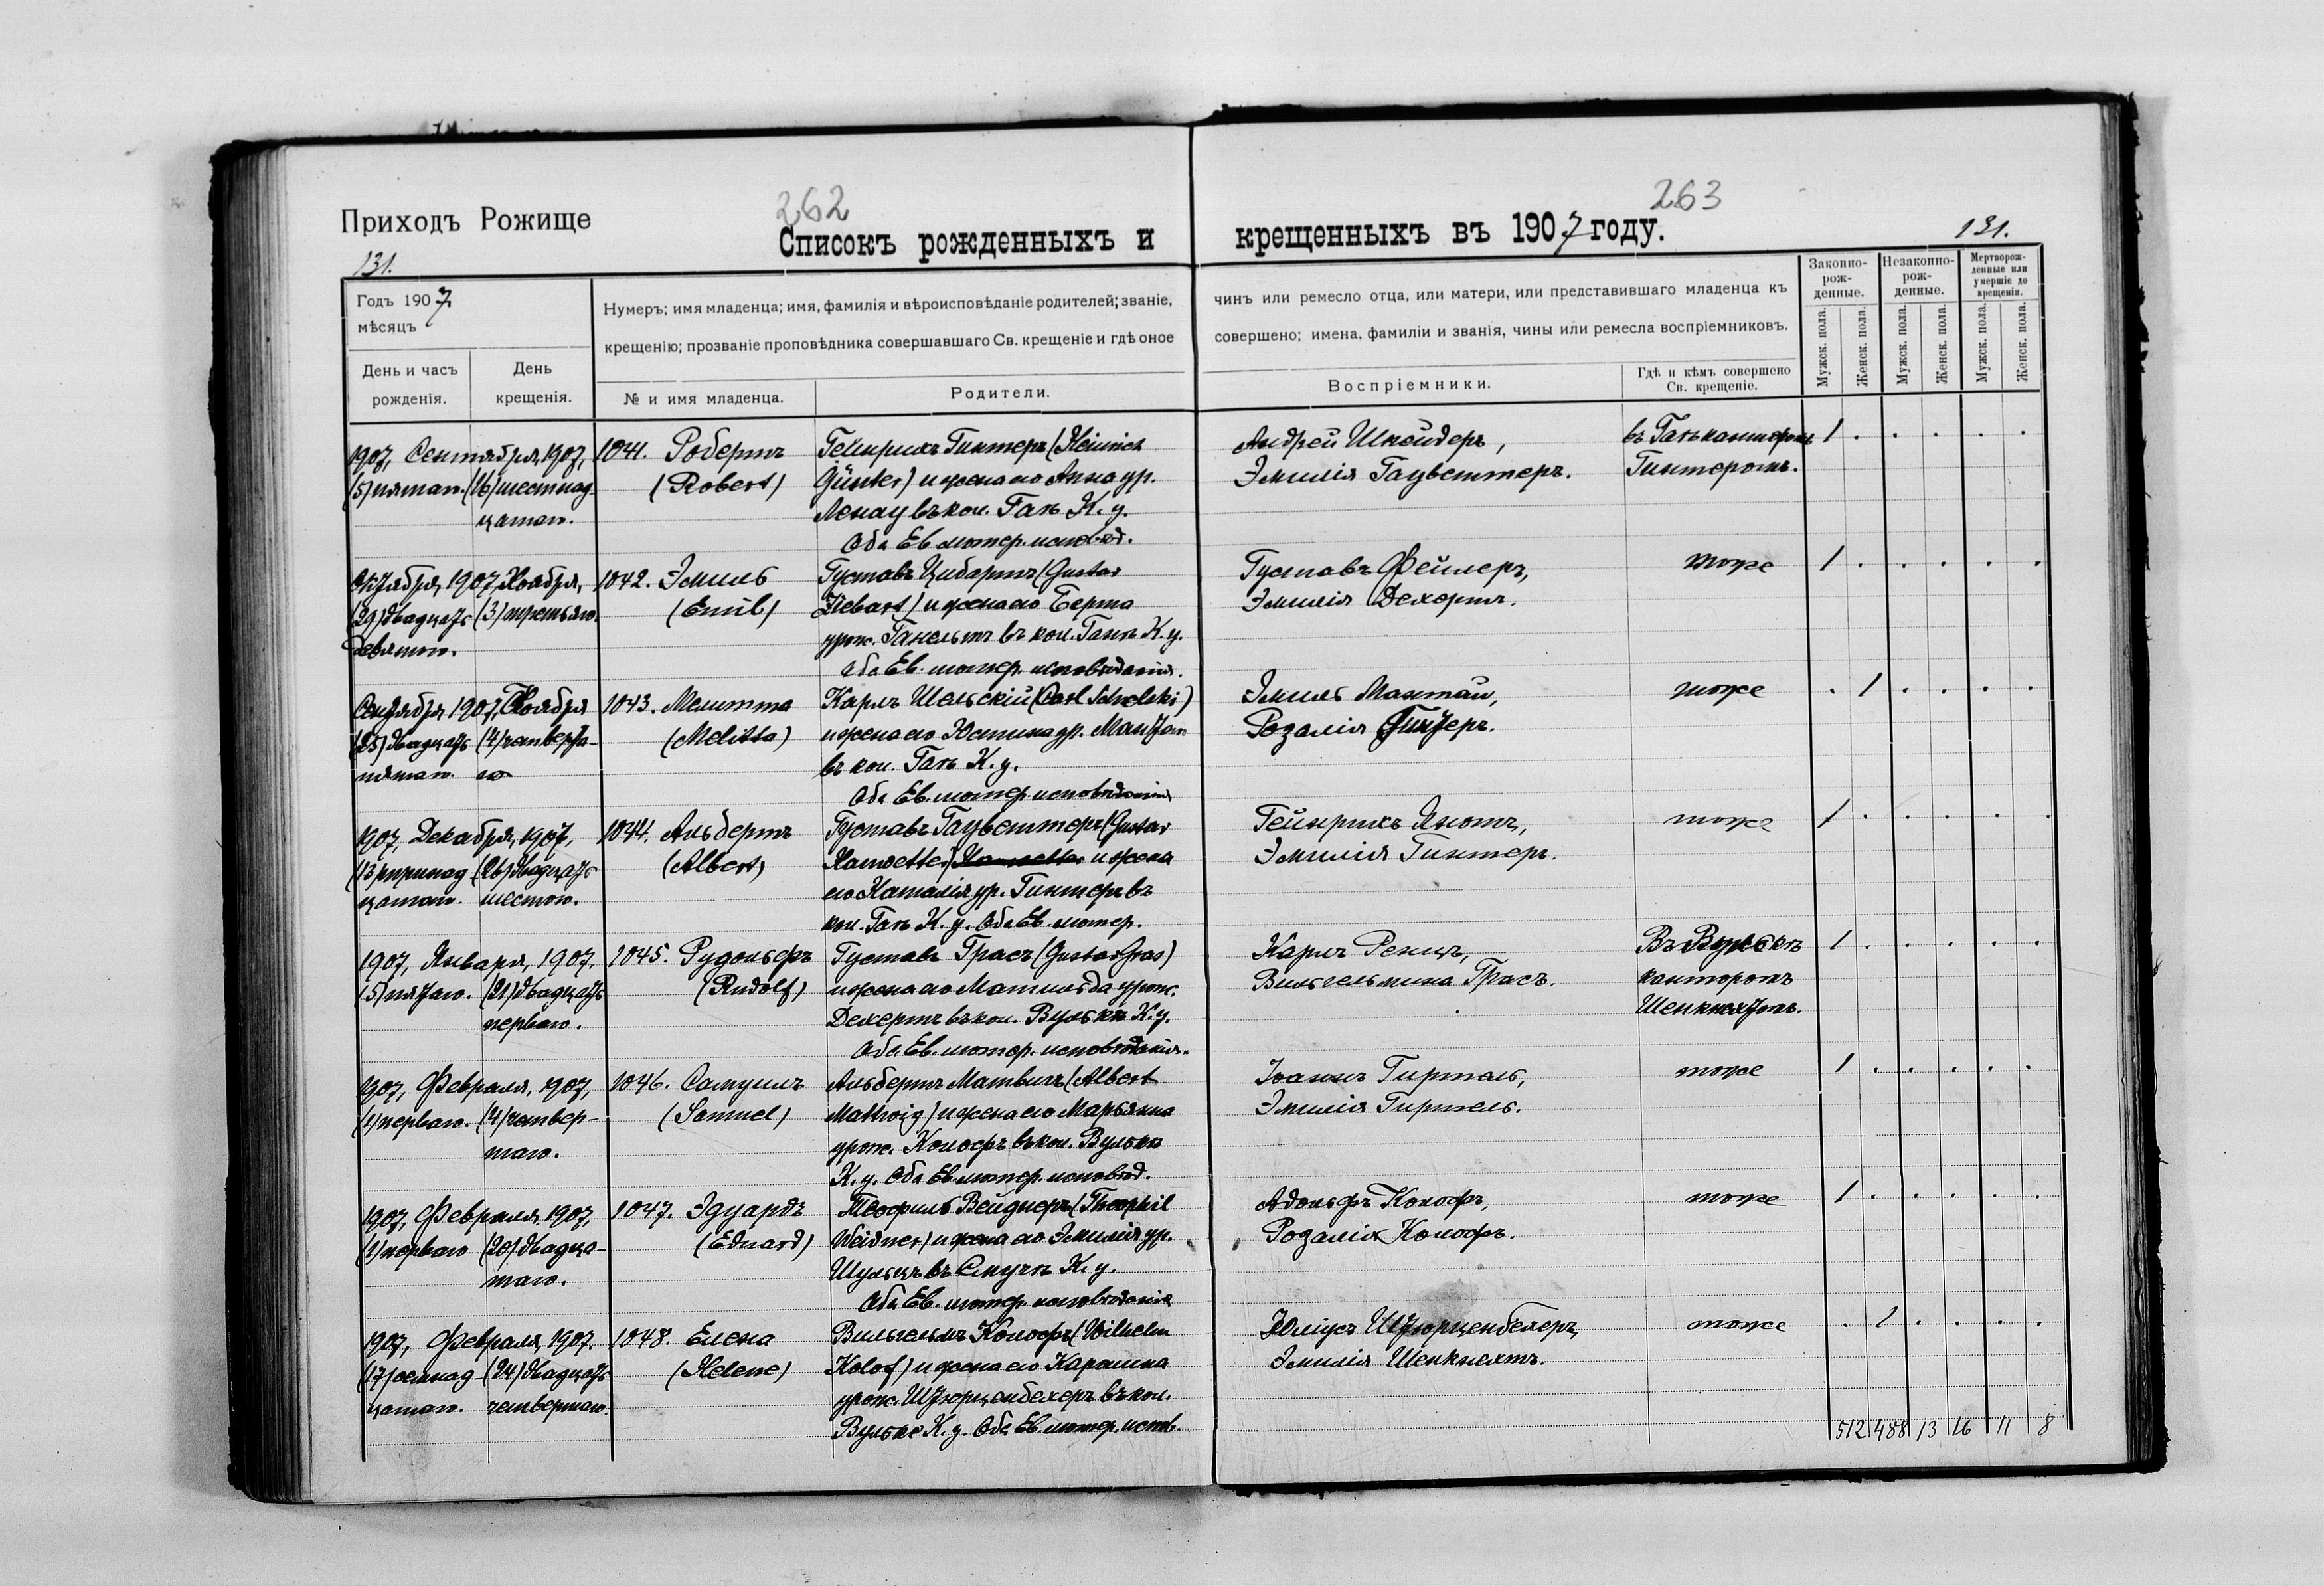 262
263
Приходъ Рожище
Списокъ рожденныхъ и крещенныхъ въ 1907 году.
131.
131.
Годъ 1907
мѣсяцъ
День и часъ рожденія.
День крещенія.
Нумеръ; имя младенца; имя, фамилія и вѣроисповѣданіе родителей; званіе,
крещенію; прозваніе проповѣдника совершавшаго Св. крещеніе и гдѣ оное
№ и имя младенца.
Родители.
чинъ или ремесло отца, или матери, или представившаго младенца къ
совершено; имена, фамиліи и званія, чины или ремесла воспріемниковъ.
Воспріемники.
Гдѣ и кѣмъ совершено Св. крещеніе.
Законно-рож-денные.
Незаконно-рож-денные.
Мертворож-денные или умершіе до крещенія.
Мужск. пола.
Женск. пола.
Мужск. пола.
Женск. пола.
Мужск. пола.
Женск. пола.
1907, Сентября, 1907, 1041. Робертъ Гейнрихъ Гинтеръ (Heinrich
(5) пятаго. (16) шестнад- (Robert) Günter) и жена его Анна ур.
цатаго. Ленау въ кол. Гать К. у.
Оба Ев. лютер. исповѣд.
Андрей Шнейдеръ,
Эмилія Гауветтеръ.
въ Гать канторомъ
Гинтеромъ.
1 . . . . .
Октября, 1907, Ноября, 1042. Эмиль Густавъ Цибартъ (Gustav
(29) двадцать (3) третьяго. (Emil) Ziebart) и жена его Берта
девятаго. урож. въ кол. Гать К. у.
Оба Ев. лютер. исповѣданія.
Густавъ Феллеръ,
Эмилія Дехертъ.
тоже
1 . . . . .
Сентября 1907, Ноября 1043. Мелитта Карлъ Шельскій (Carl Schelski)
(25) двадцать (4) четверта- (Melitta) и жена его Юстина ур. Мантай
пятаго. го въ кол. Гать К. у.
Оба Ев. лютер. исповѣданія
Эмиль Мантай,
Розалія Гинтеръ.
тоже
. 1 . . . .
1907, Декабря, 1907, 1044. Альбертъ Густавъ Гауветтеръ (Gustav
(13) тринад (26) двадцать (Albert) Hauwetter) и жена
цатаго. шестого. его Наталія ур. Гинтеръ въ
кол. Гать К. у. Оба Ев. лютер.
Гейнрихъ Янотъ,
Эмилія Гинтеръ.
тоже
1 . . . . .
1907, Января, 1907. 1045. Рудольфъ Густавъ Грасъ (Gustav Gras)
(5) пятаго. (21) двадцать (Rudolf) и жена его Матильда урож.
перваго. Дехертъ въ кол. Вульки К. у.
Оба Ев. лютер. исповѣданія.
Карлъ Ренцъ,
Вильгельмина Грасъ.
Въ Вулькѣ
канторомъ
Шенкнехтомъ.
1 . . . . .
1907, Февраля, 1907, 1046. Самуилъ Альбертъ Матвигъ (Albert
(1) перваго. (4) четвер- (Samuel) Mathwig) и жена его Марьянна
таго. урож. Колофъ въ кол. Вульки
К. у. Оба Ев. лютер. исповѣд.
Іоаннъ Гиртель,
Эмилія Гиртель.
тоже
1 . . . . .
1907, Февраля, 1907, 1047. Эдуардъ Теофилъ Вейднеръ (Theophil
(1) перваго (20) двадца- (Eduard) Weidner) и жена его Эмилія ур.
таго. Шульцъ въ К. у.
Оба Ев. лютер. исповѣданія
Адольфъ Колофъ,
Розалія Колофъ.
тоже
1 . . . . .
1907, Февраля, 1907. 1048. Елена Вильгельмъ Колофъ (Wilhelm
(17) семнад- (24) двадцать (Helene) Kolof) и жена его Каролина
цатаго. четвертаго. урож. Штюрценбехеръ въ кол.
Вульке К. у. Оба Ев. лютер. испов.
Юліусъ Штюрценбехеръ,
Эмилія Шенкнехтъ.
тоже
. 1 . . . .
512 488 13 16 11 8